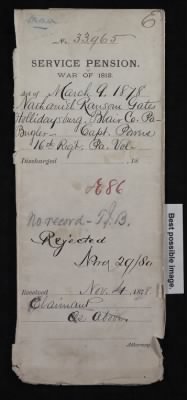 6
No. 33965
SERVICE PENSION.
WAR OF 1812.
Act of March 9, 1878.
Nathaniel Ransom Gates
Hollidaysburg, Blair Co. Pa.
Bugler - Capt.
16th Regt. Pa. Vol.
Discharged , 18
E86
No record - T.B.
Rejected
Nov 29/80
Received Nov. 4, 1878.
Claimant
As above
Attorney
Best possible image.